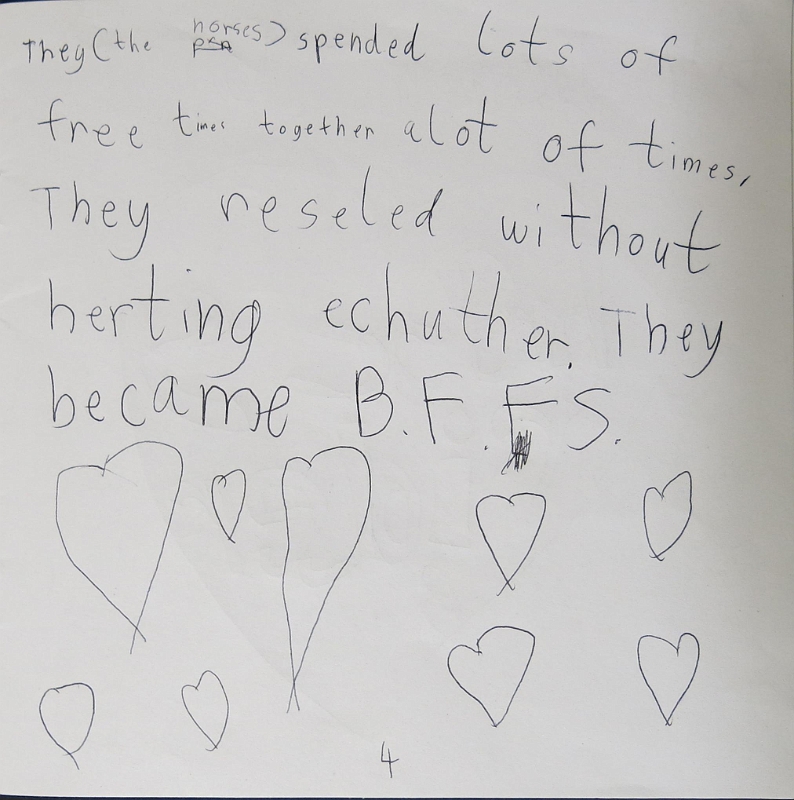 They (the horses) spended lots of
free times together alot of times,
They reseled without
herting echuther. They
became B.F.F.S.
4